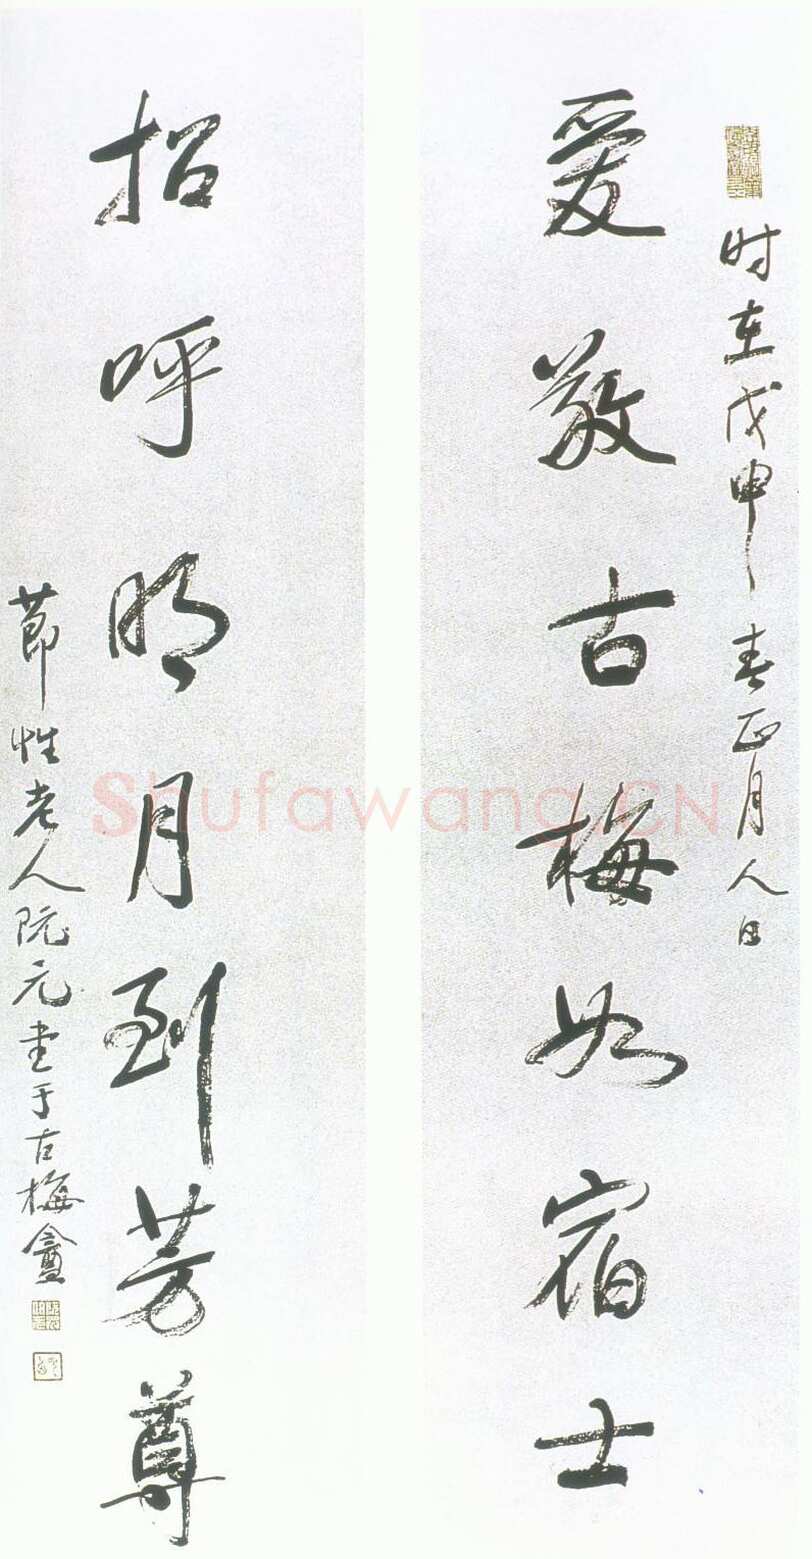 时在戊申春正月人日
爱敬古梅如宿士
招呼明月到芳尊
節性老人阮元书于古梅盦
Shufawang.CN